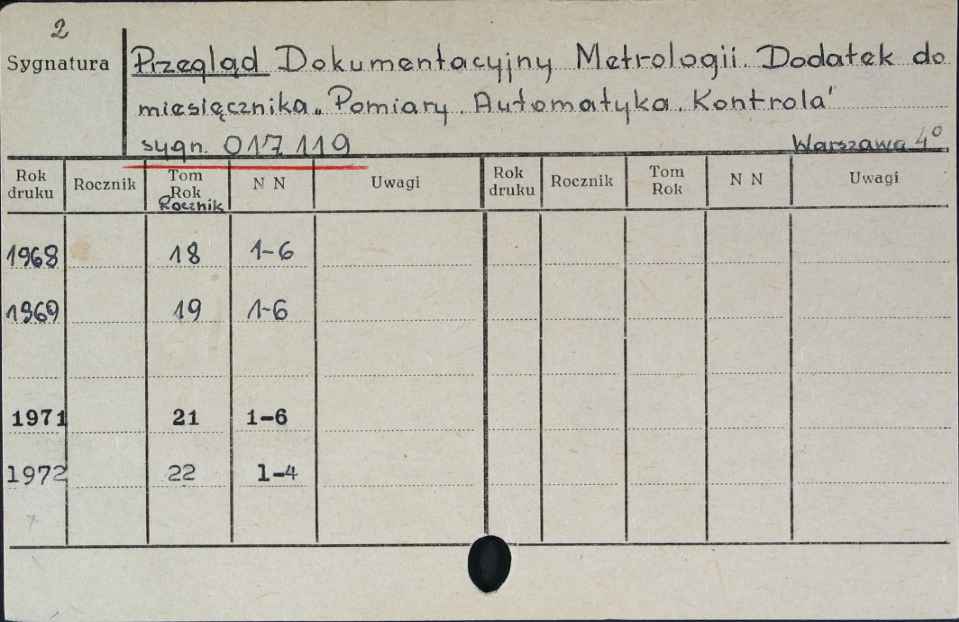 2
Sygnatura
Przegląd Dokumentacyjny Metrologii. Dodatek do
miesięcznika „Pomiary. Automatyka. Kontrola"
sygn. 017 119 Warszawa 4°
Rok druku Rocznik Tom Rok Rocznik N N Uwagi Rok druku Rocznik Tom Rok N N Uwagi
1968 18 1-6
1969 19 1-6
1971 21 1-6
1972 22 1-4